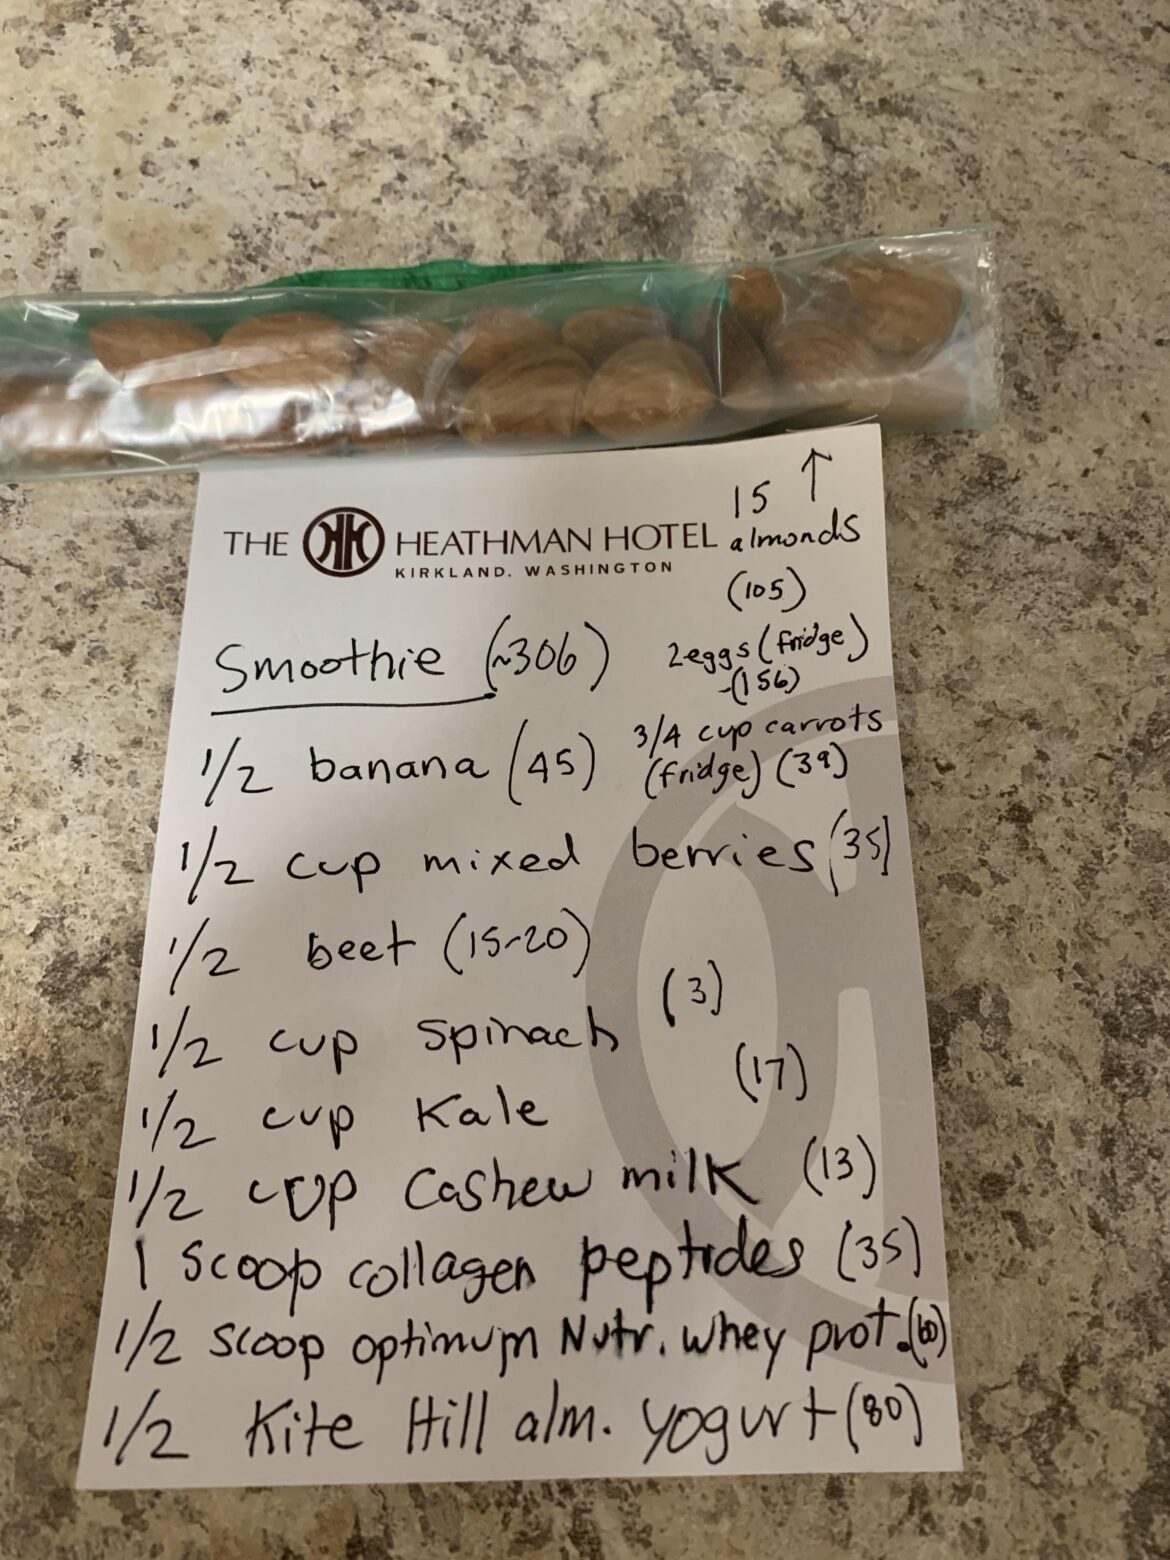 15 ↑
almonds
(105)
THE HEATHMAN HOTEL
KIRKLAND, WASHINGTON
2 eggs (fridge)
-(156)
3/4 cup carrots
(fridge) (39)
Smoothie (~306)
1/2 banana (45)
1/2 cup mixed berries (35)
1/2 beet (15-20)
1/2 cup spinach (3)
1/2 cup Kale (17)
1/2 cup Cashew milk (13)
1 scoop collagen peptides (35)
1/2 scoop optimum Nutr. whey prot. (60)
1/2 Kite Hill alm. yogurt (80)